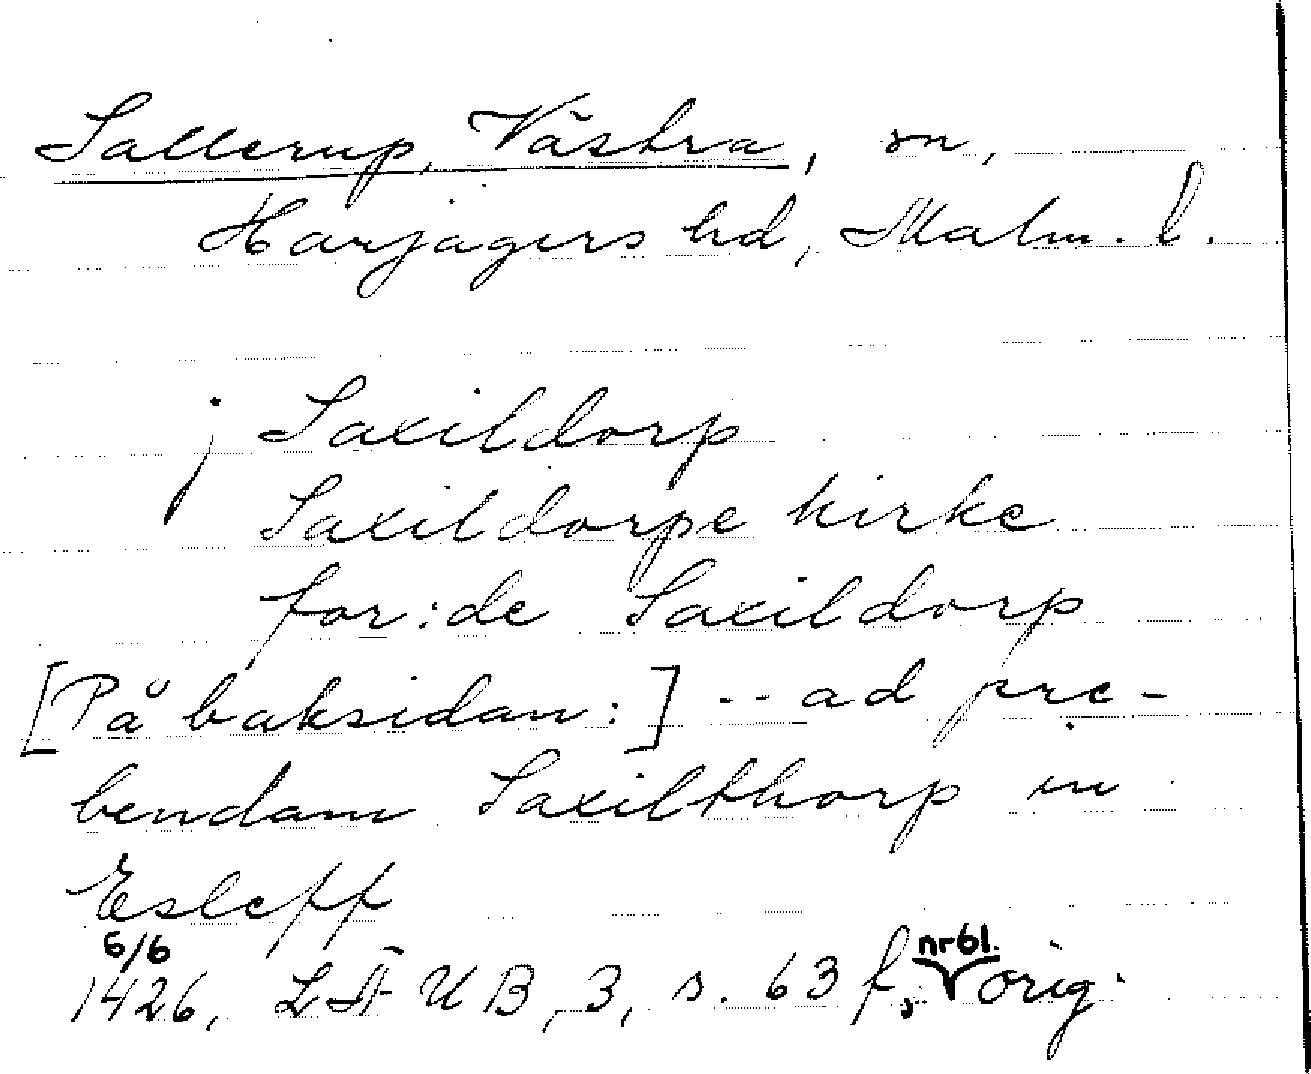 Sallerup, Västra, sn,
Harjagers hd, Malm. l.
i Saxildorp
Saxildorpe kirke
for:de Saxildorp
[På baksidan:] -- ad pre-
bendam Saxilthorp in
Esleff
6/6 nr 61.
1426, LÄUB, 3, s. 63 f, orig.